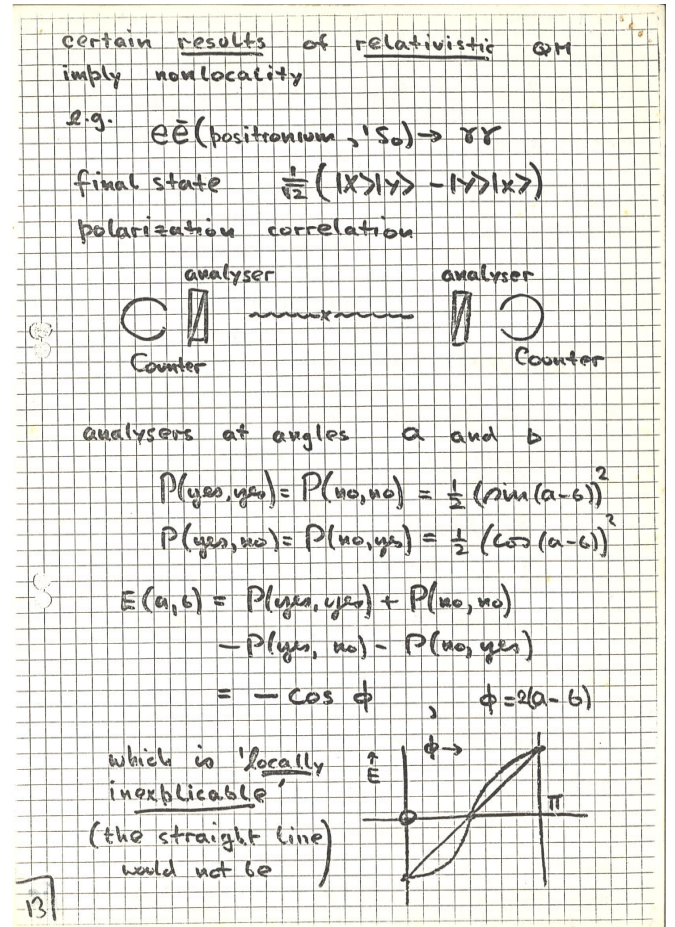 certain results of relativistic QM
imply nonlocality
e.g. eē (positronium, ¹S₀) → γγ
final state 1/√2 (|x>|y> - |y>|x>)
polarization correlation
analyser analyser
Counter Counter
analysers at angles a and b
P(yes, yes) = P(no, no) = 1/2 (sin (a-b))²
P(yes, no) = P(no, yes) = 1/2 (cos (a-b))²
E(a, b) = P(yes, yes) + P(no, no)
- P(yes, no) - P(no, yes)
= - cos ϕ , ϕ = 2(a-b)
which is 'locally
inexplicable'
(the straight line)
would not be
↑ E
ϕ →
π
13